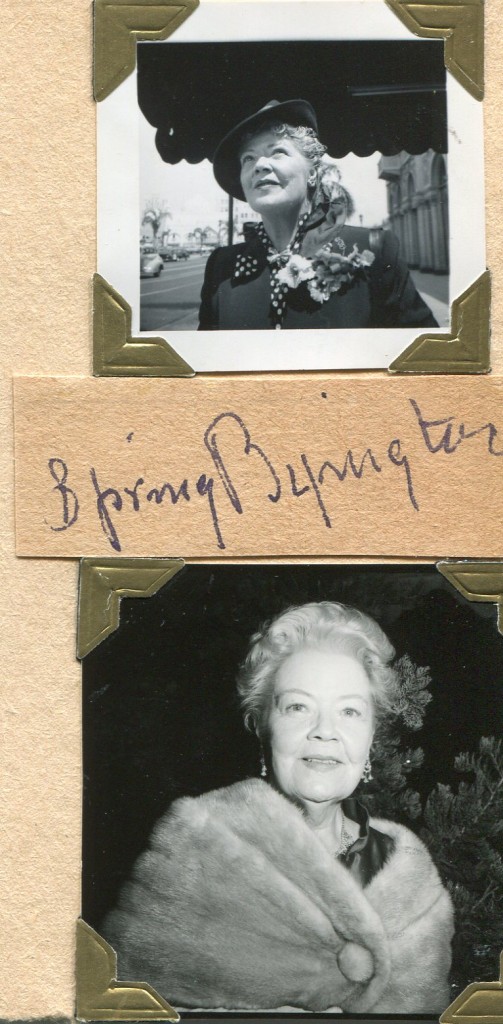 Spring Byington